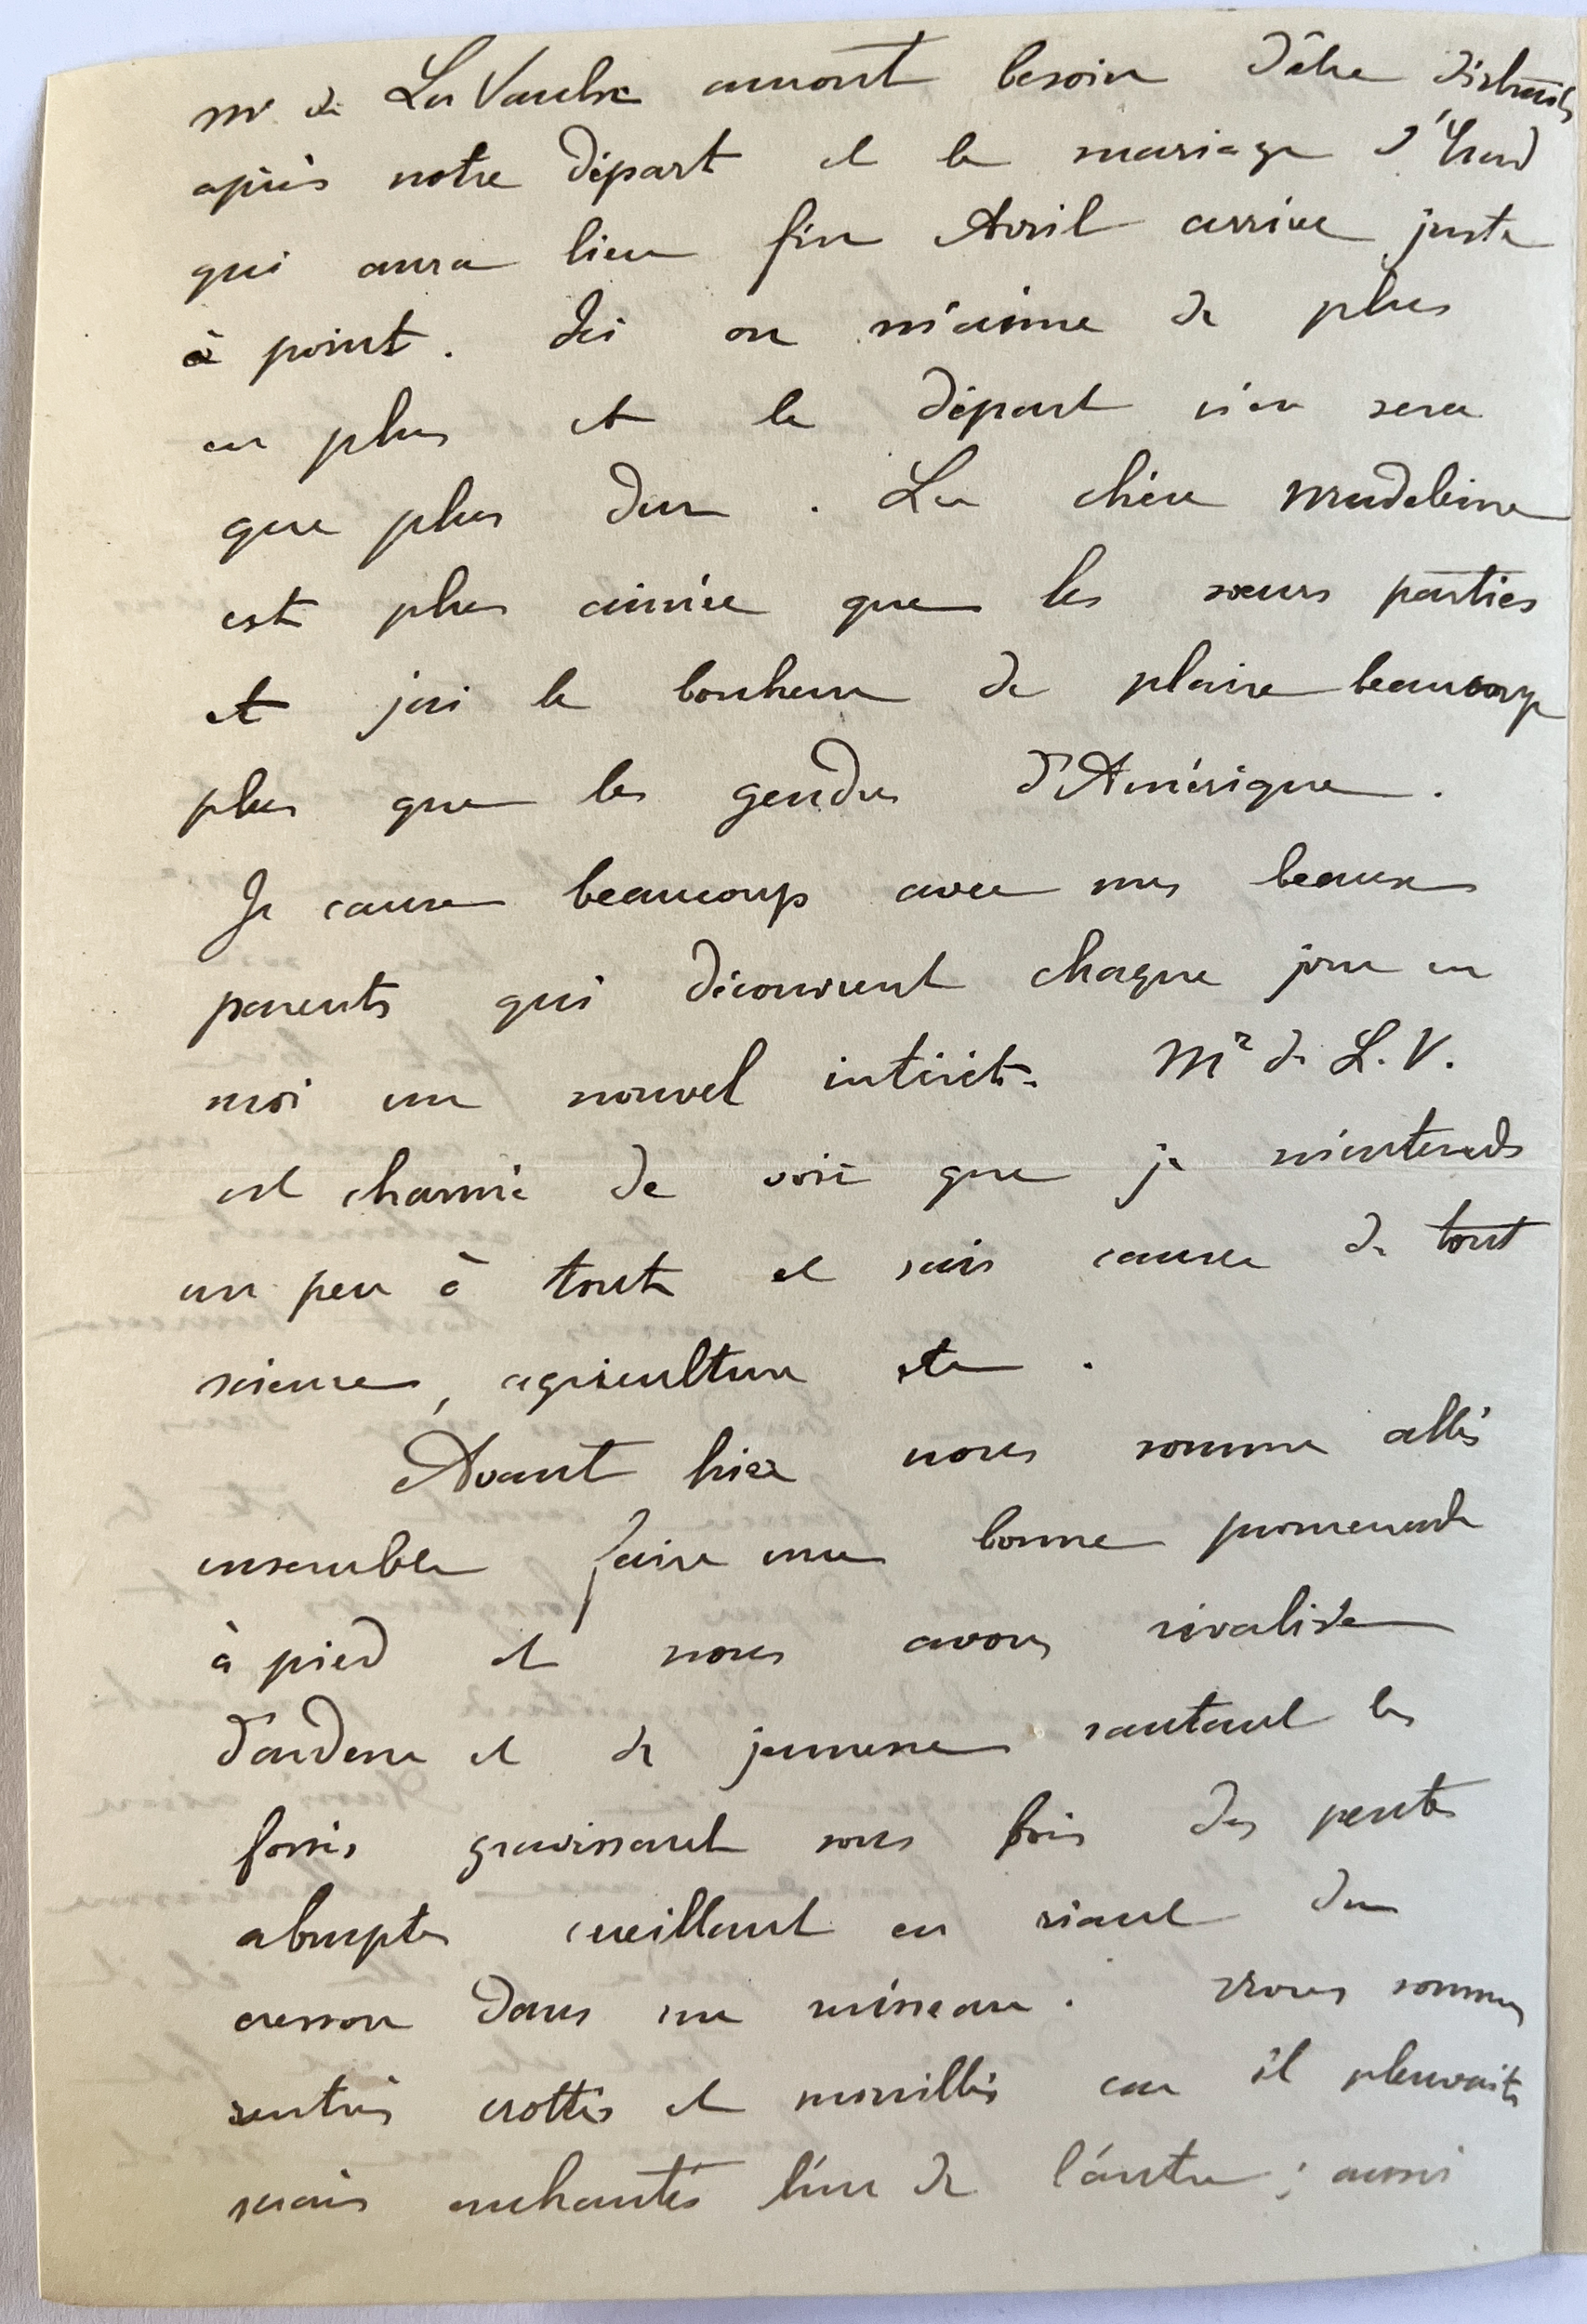 mr de La Vaulx auront besoin d'être distraits
après notre départ et le mariage
qui aura lieu fin Avril arrive juste
à point. Ici on m'aime de plus
en plus et le départ n'en sera
que plus dur. La chère Madeleine
est plus aimée que les sœurs parties
et j'ai le bonheur de plaire beaucoup
plus que les gendres d'Amérique.
Je cause beaucoup avec mes beaux
parents qui découvrent chaque jour en
moi un nouvel intérêt. Mr de L. V.
est charmé de voir que je m'entends
un peu à tout et sais causer de tout
science, agriculture etc.
Avant hier nous somme allés
ensemble faire une bonne promenade
à pied et nous avons rivalisé
d'ardeur et de jeunesse sautant les
fossés gravissant sous bois des pentes
abruptes cueillant en riant du
cresson dans un ruisseau. Nous sommes
rentrés crottés et mouillés car il pleuvait
mais enchantés l'un de l'autre ; aussi